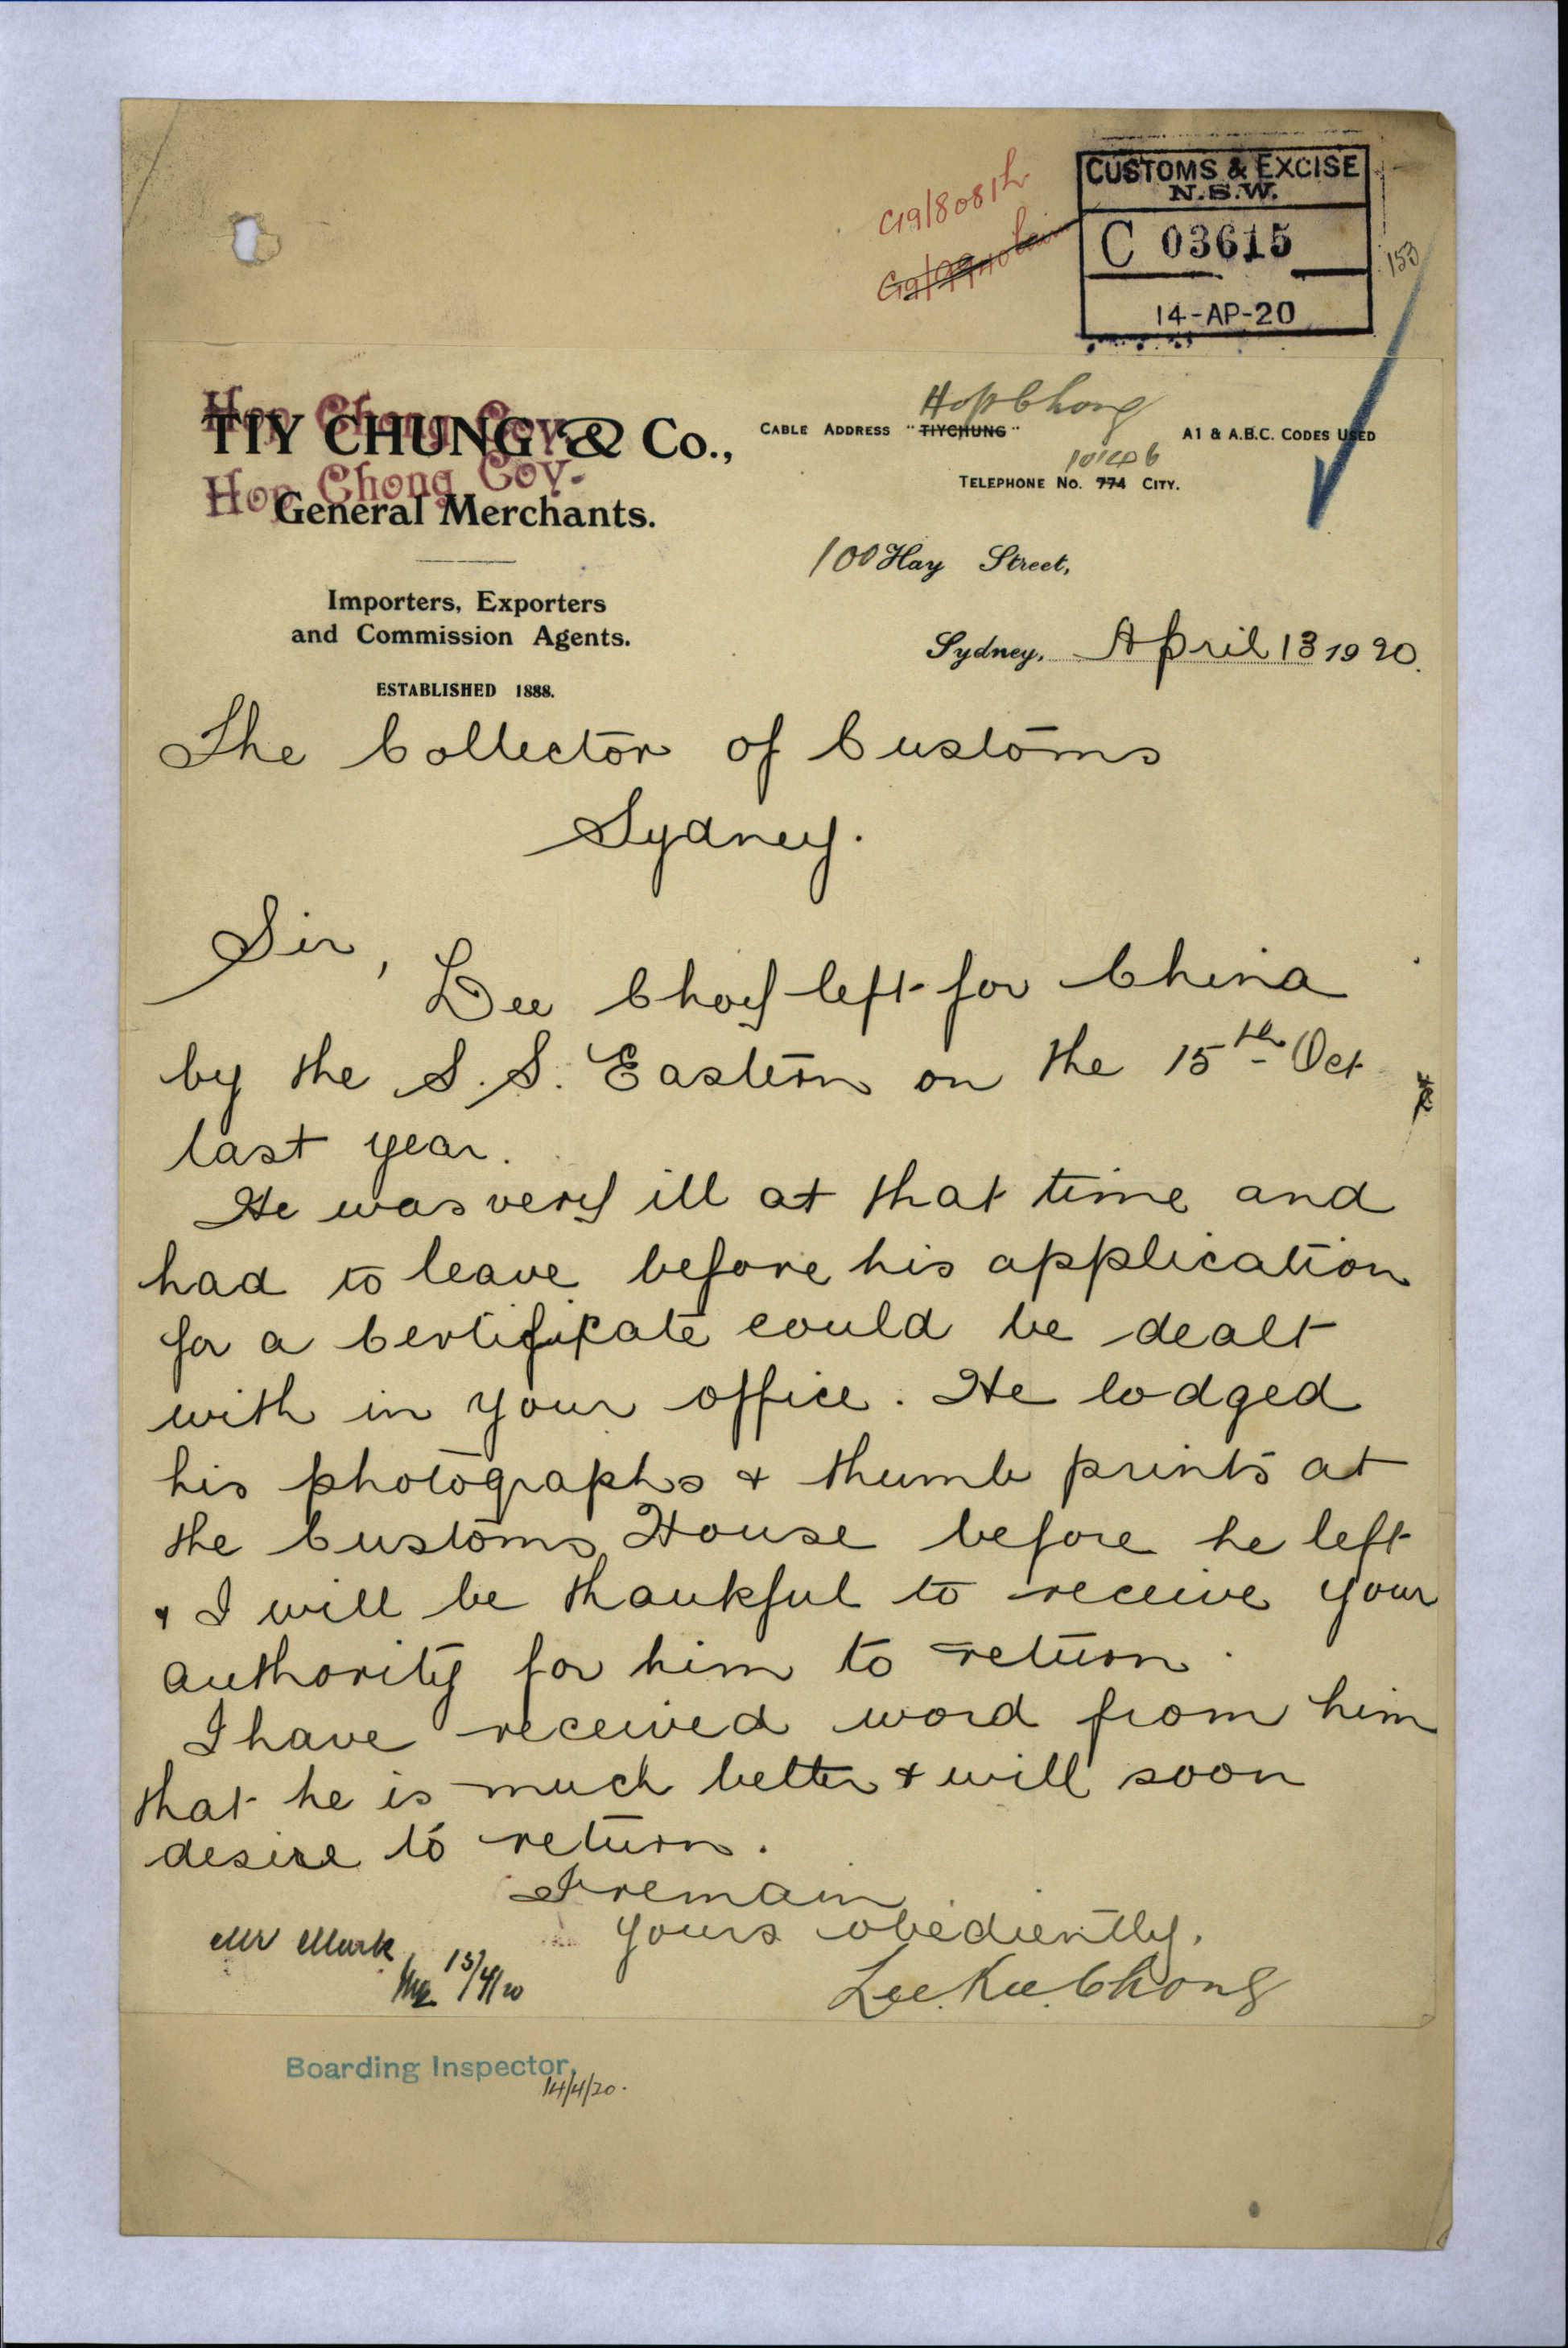 G19/8081
CUSTOMS & EXCISE
N.S.W.
C 03615
14-AP-20
153
Hop Chong Coy.
TIY CHUNG & Co.,
Hop Chong Coy.
General Merchants.
Importers, Exporters
and Commission Agents.
ESTABLISHED 1888.
Hop Chong
CABLE ADDRESS "TIYCHUNG"
A1 & A.B.C. CODES USED
TELEPHONE No. 774 CITY.
100 Hay Street,
Sydney, April 13 1920.
The Collector of Customs
Sydney.
Sir,
Lee Choy left for China
by the S.S. Eastern on the 15th Oct
last year.
He was very ill at that time and
had to leave before his application
for a Certificate could be dealt
with in your office. He lodged
his photographs & thumb prints at
the Customs House before he left
& I will be thankful to receive your
authority for him to return.
I have received word from him
that he is much better & will soon
desire to return.
I remain
yours obediently.
Lee Kee Chong
Mr Mark
13/4/20
Boarding Inspector,
14/4/20.